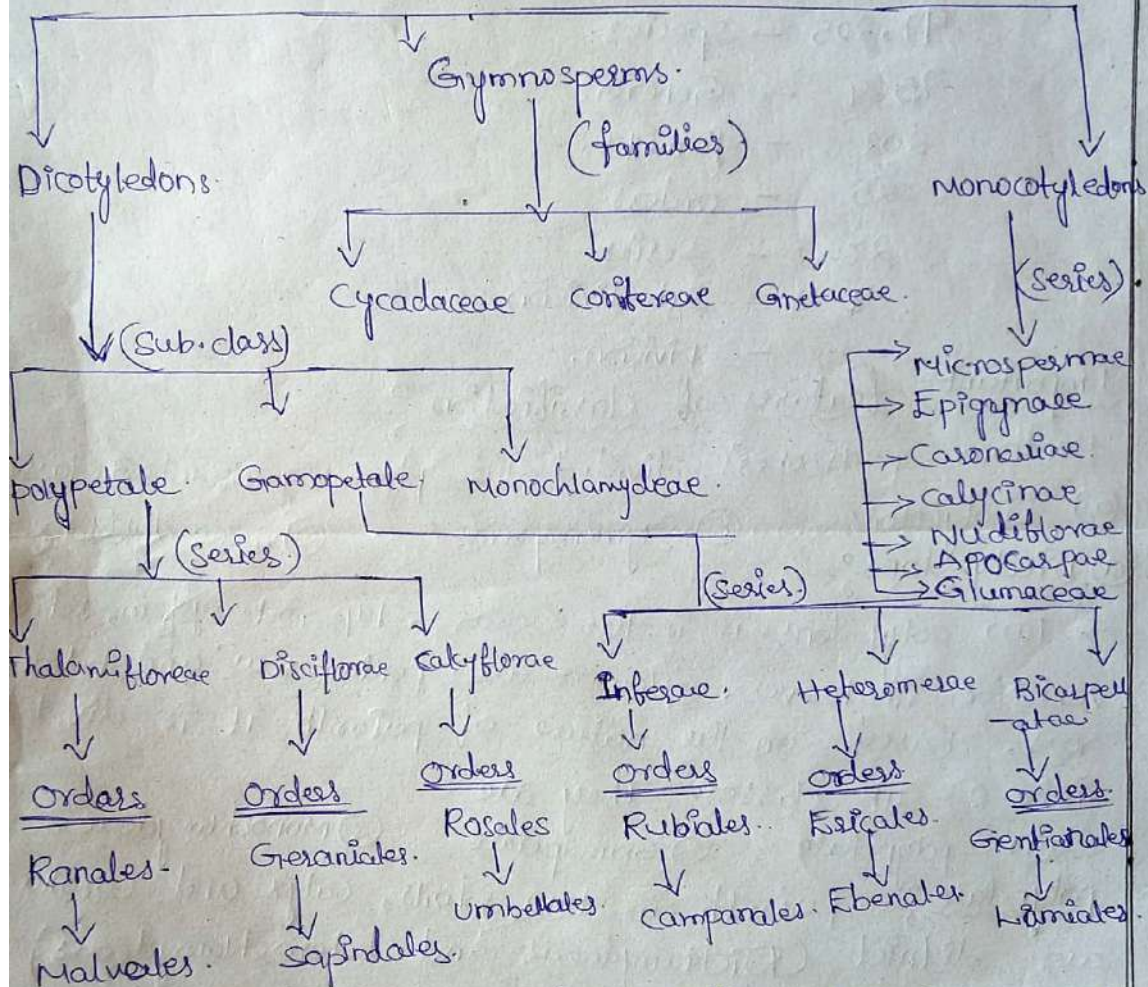 Gymnosperms.
(families)
Dicotyledons.
Monocotyledons
Cycadaceae Confereae Gnetaceae.
(Series)
(Sub.class)
Microspermae
Epigynaee
Calycinae
Nudiflorae
Apocarpae
Glumaceae
polypetale. Gamopetale, Monochlamydeae.
(Series.)
(Series.)
Thalamifloreae Disciflorae Calyflorae
Inferae. Heteromerae Bicarpell
-atae
Orders Orders Orders Orders Orders Orders.
Ranales- Geraniales. Rosales Rubiales.. Ericales. Gentianales
Malveales. Sapindales. Umbellales. Campanales. Ebenales. Lamiales.